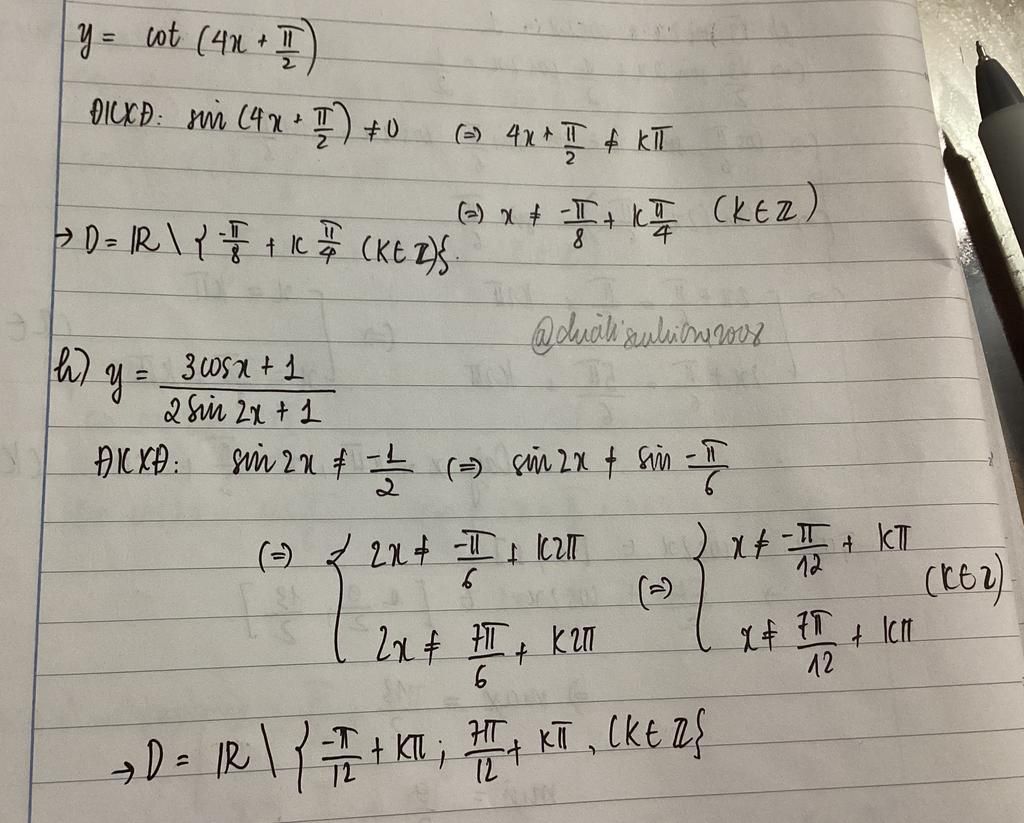 y = cot (4x + π/2)
ĐKXĐ: sin (4x + π/2) ≠ 0 (=) 4x + π/2 ≠ kπ
(=) x ≠ -π/8 + k π/4 (k∈Z)
→ D = R \ { -π/8 + k π/4 (k∈Z)}.
h) y = (3cosx + 1)/(2 sin 2x + 1)
ĐKXĐ: sin 2x ≠ -1/2 (=) sin 2x ≠ sin -π/6
(=) { 2x ≠ -π/6 + k2π (=) { x ≠ -π/12 + kπ (k∈Z)
2x ≠ 7π/6 + k2π x ≠ 7π/12 + kπ
→ D = R \ { -π/12 + kπ ; 7π/12 + kπ, (k∈Z}